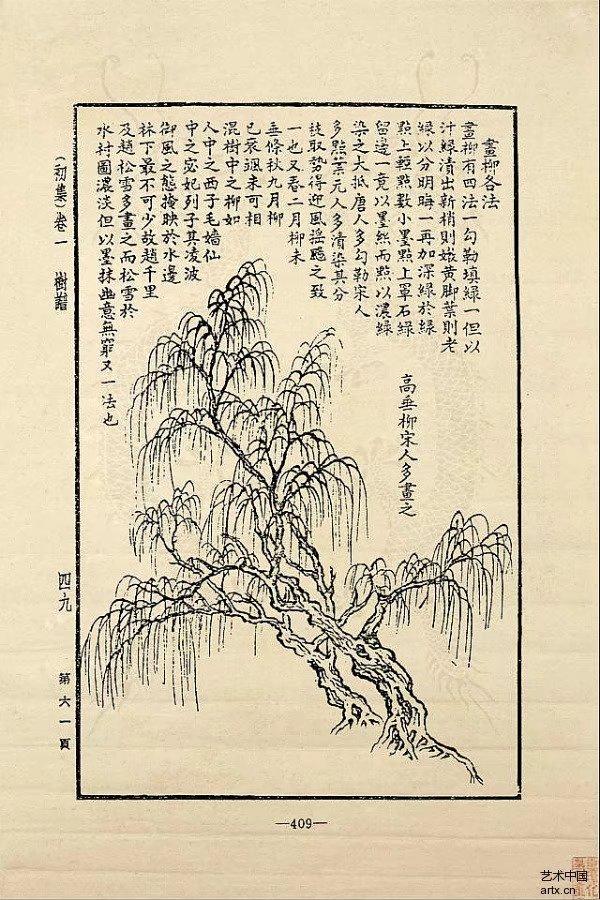 畫柳各法
畫柳有四法一勾勒填綠一但以
汁綠漬出新梢則嫩黄脚葉則老
綠以分明晦一再加深綠於綠
點上輕點數小墨點上罩石綠
留邊一竟以墨然而點以濃綠
染之大抵唐人多勾勒宋人
多點葉元人多漬染其分
枝取勢得迎風摇颺之致
一也又春二月柳未
垂條秋九月柳
已衰颯未可相
混樹中之柳如
人中之西子毛嬙仙
中之宓妃列子其凌波
御風之態掩映於水邊
林下最不可少故趙千里
及趙松雪多畫之而松雪於
水村圖濃淡但以墨抹幽意無窮又一法也
高垂柳宋人多畫之
(初集)卷一 樹譜
四九
第六一頁
—409—
艺术中国
artx.cn